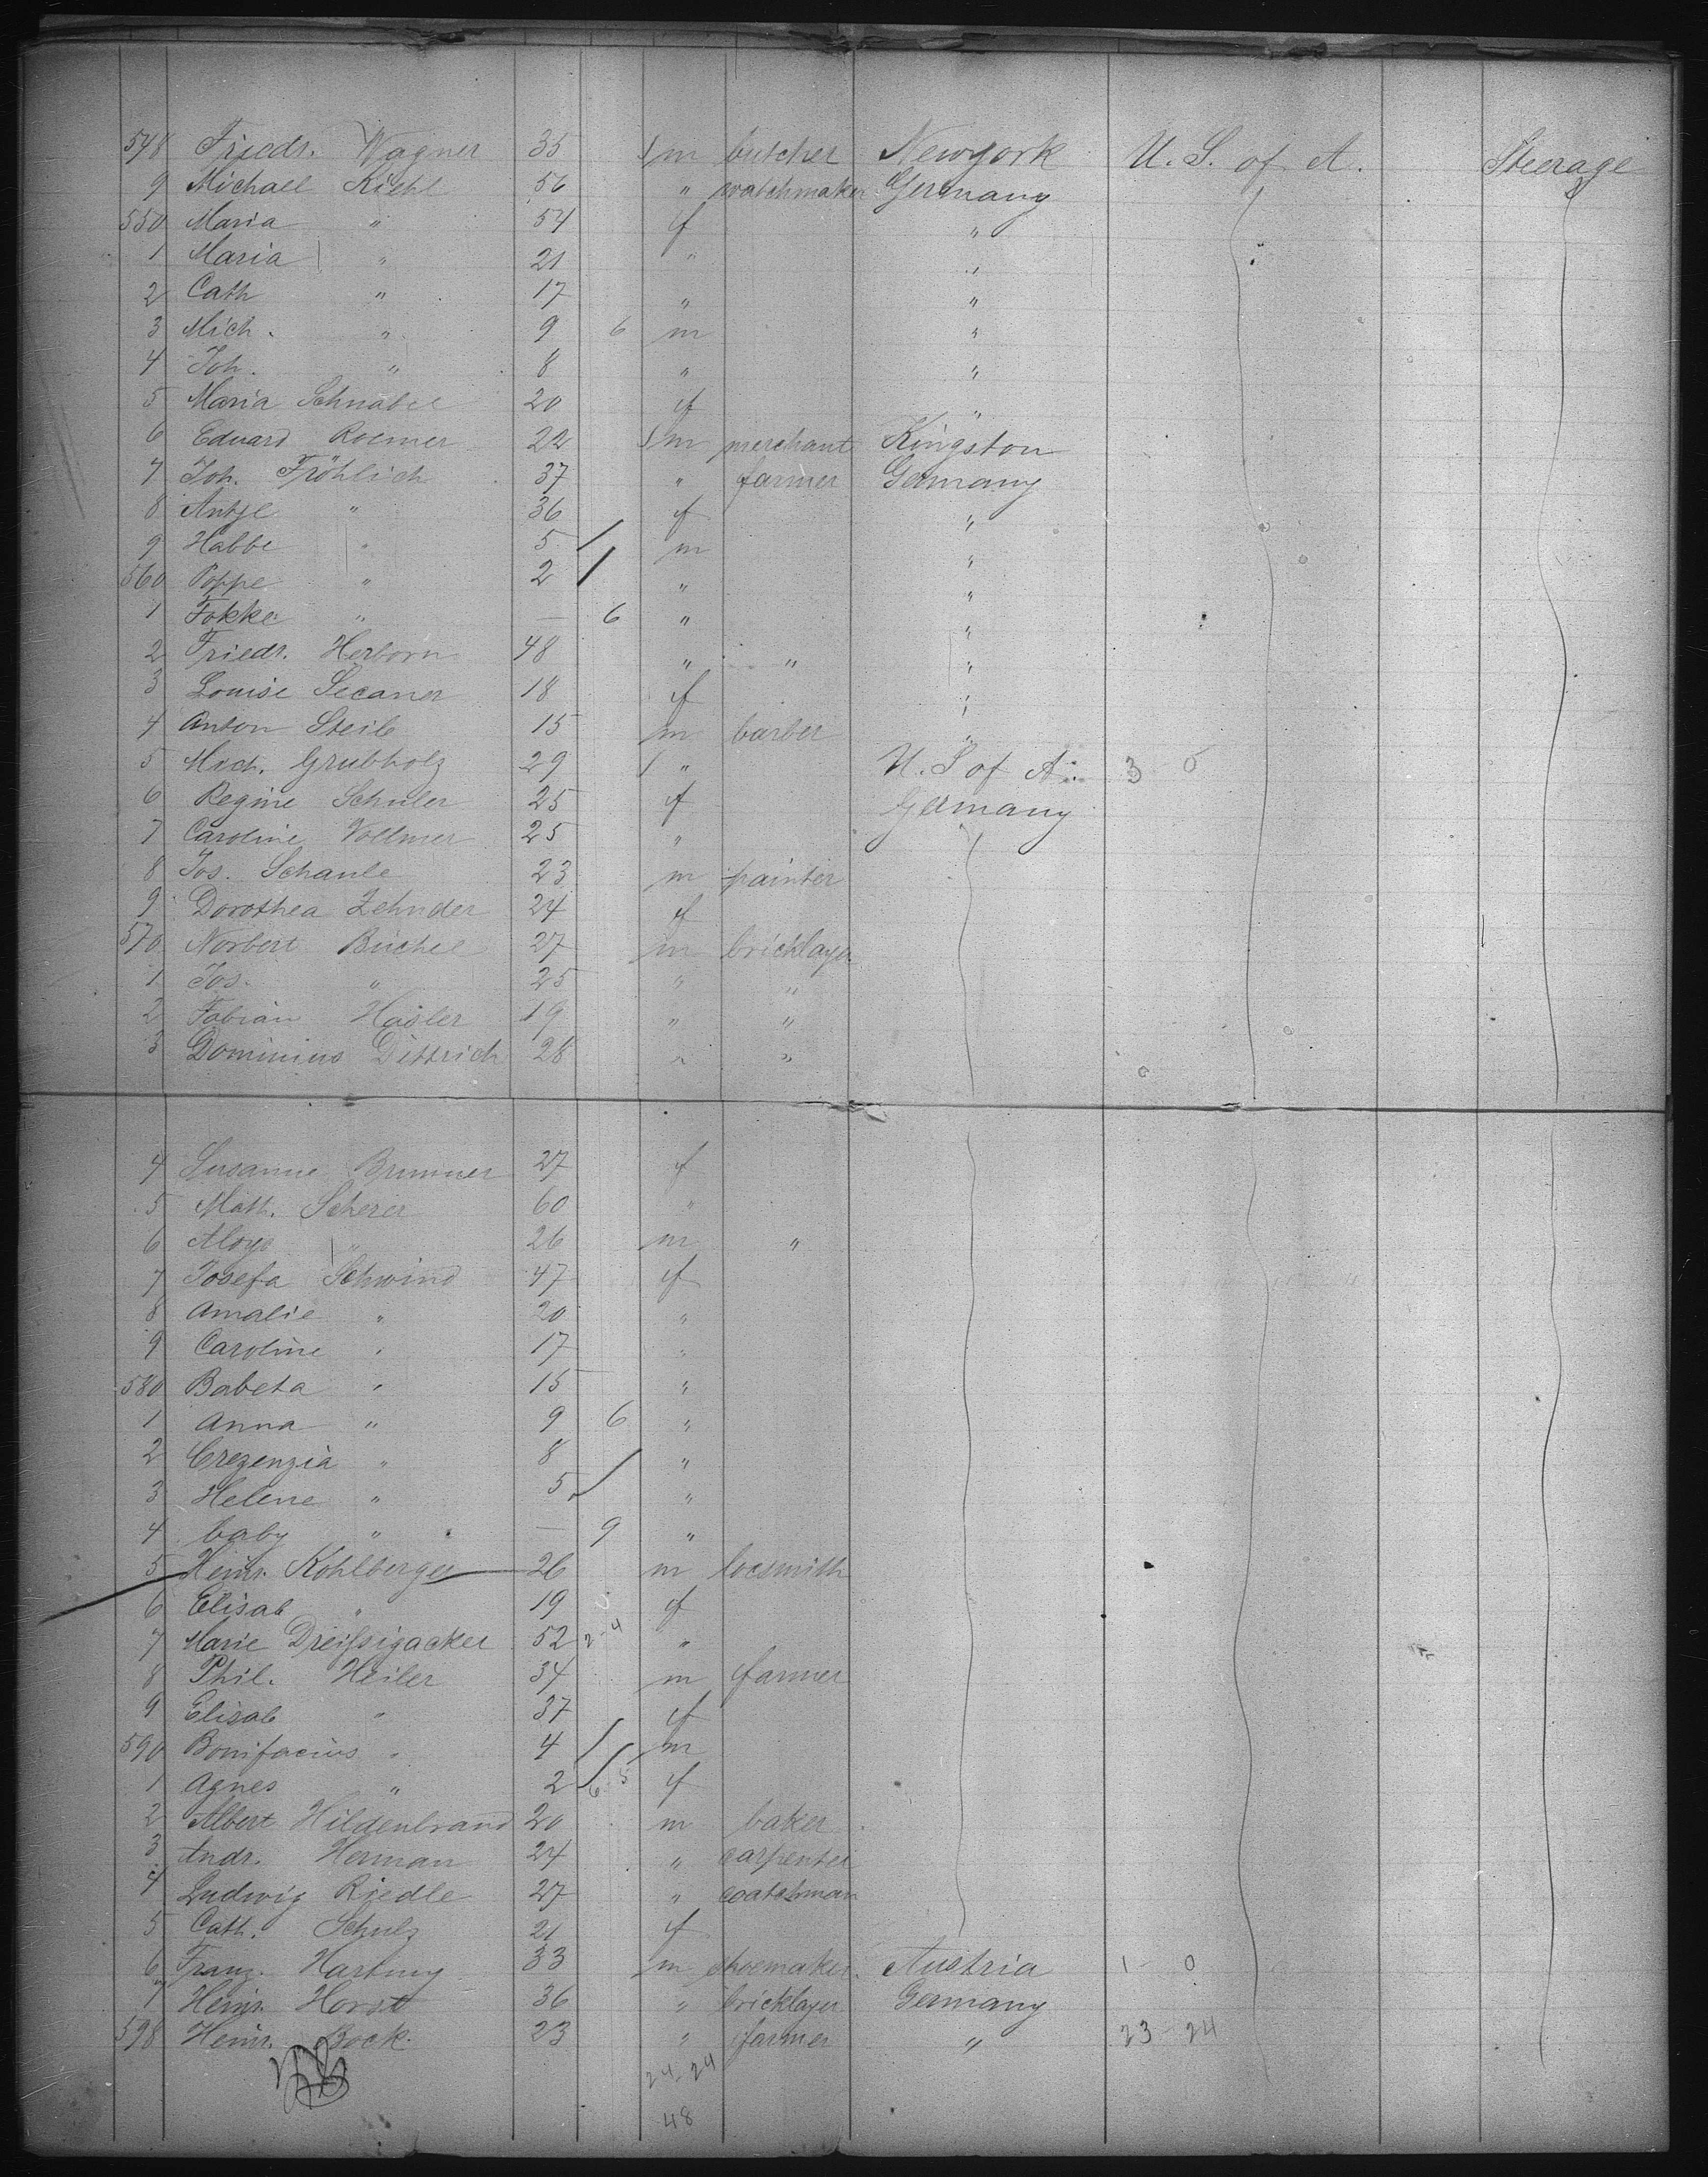 548 Friedr. Wagner 35 m butcher Newyork U. S. of A. Steerage
9 Michael Riehl 56 " watchmaker Germany
550 Maria " 54 f "
1 Maria " 21 " "
2 Cath " 17 " "
3 Mich. " 9 6 m "
4 Joh. " 8 " "
5 Maria Schnabel 20 f "
6 Eduard Roemer 22 m merchant Kingston
7 Joh. Fröhlich 37 " farmer Germany
8 Antje " 36 f "
9 Habbe " 5 m "
560 Poppe " 2 " "
1 Fokke " — 6 " "
2 Friedr. Herborn 48 " " "
3 Louise 18 f "
4 Anton Steib 15 m barber "
5 Mich. Grubholz 29 " U. S of A. 3 0
6 Regine Schuler 25 f Germany
7 Caroline Vollmer 25 "
8 Jos. Schaule 23 m painter
9 Dorothea Zehnder 24 f
570 Norbert Büchel 27 m bricklayer
1 Jos. " 25 " "
2 Fabian Hasler 19 " "
3 Dominius Dittrich 28 " "
4 Susanne Brunner 27 f
5 Math. Scherer 60 "
6 Aloys " 26 m "
7 Josefa Schwind 47 f
8 Amalie " 20 "
9 Caroline " 17 "
580 Babeta " 15 "
1 Anna " 9 6 "
2 Crezenzia " 8 "
3 Helene " 5 "
4 baby " — 9 "
5 Heinr. Kohlberger 26 m locsmith
6 Elisab " 19 f
7 Marie Dreifsigacker 52 2-4 "
8 Phil. Heiler 34 m farmer
9 Elisab " 37 f
590 Bonifacius " 4 m
1 Agnes " 2 6-5 f
2 Albert Hildenbrand 20 m baker
3 Andr. Herman 24 " carpenter
4 Ludwig Riedle 27 " coatchman
5 Cath. Schulz 21 f
6 Franz. Hartung 33 m shoemaker Austria 1 0
7 Heinr. Horst 36 " bricklayer Germany
598 Heinr. Bock. 23 " farmer " 23-24
24-24
48